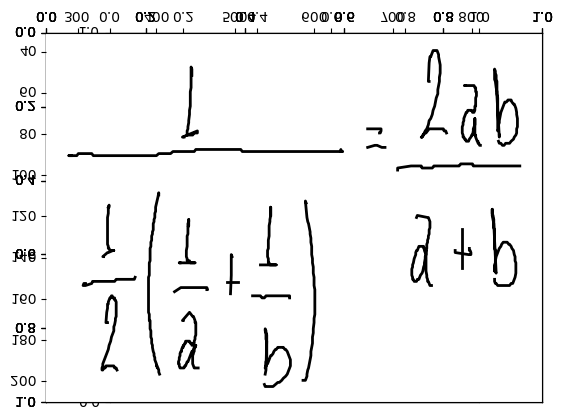 0.0 300 1.0 0.0 0.2 400 0.2 500 0.4 0.4 600 0.6 0.6 700 0.8 0.8 800 1.0 1.0
40
60
0.2
80
100
0.4
120
140
0.6
160
0.8
180
200
1.0
0.0
\frac{1}{\frac{1}{2}\left(\frac{1}{a}+\frac{1}{b}\right)}=\frac{2ab}{a+b}